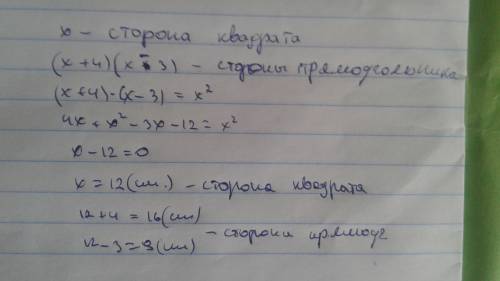 x - сторона квадрата
(x+4)(x-3) - стороны прямоугольника
(x+4)·(x-3) = x²
4x + x² - 3x - 12 = x²
x - 12 = 0
x = 12 (см.) - сторона квадрата
12+4 = 16 (см)
12-3 = 9 (см) - стороны прямоуг